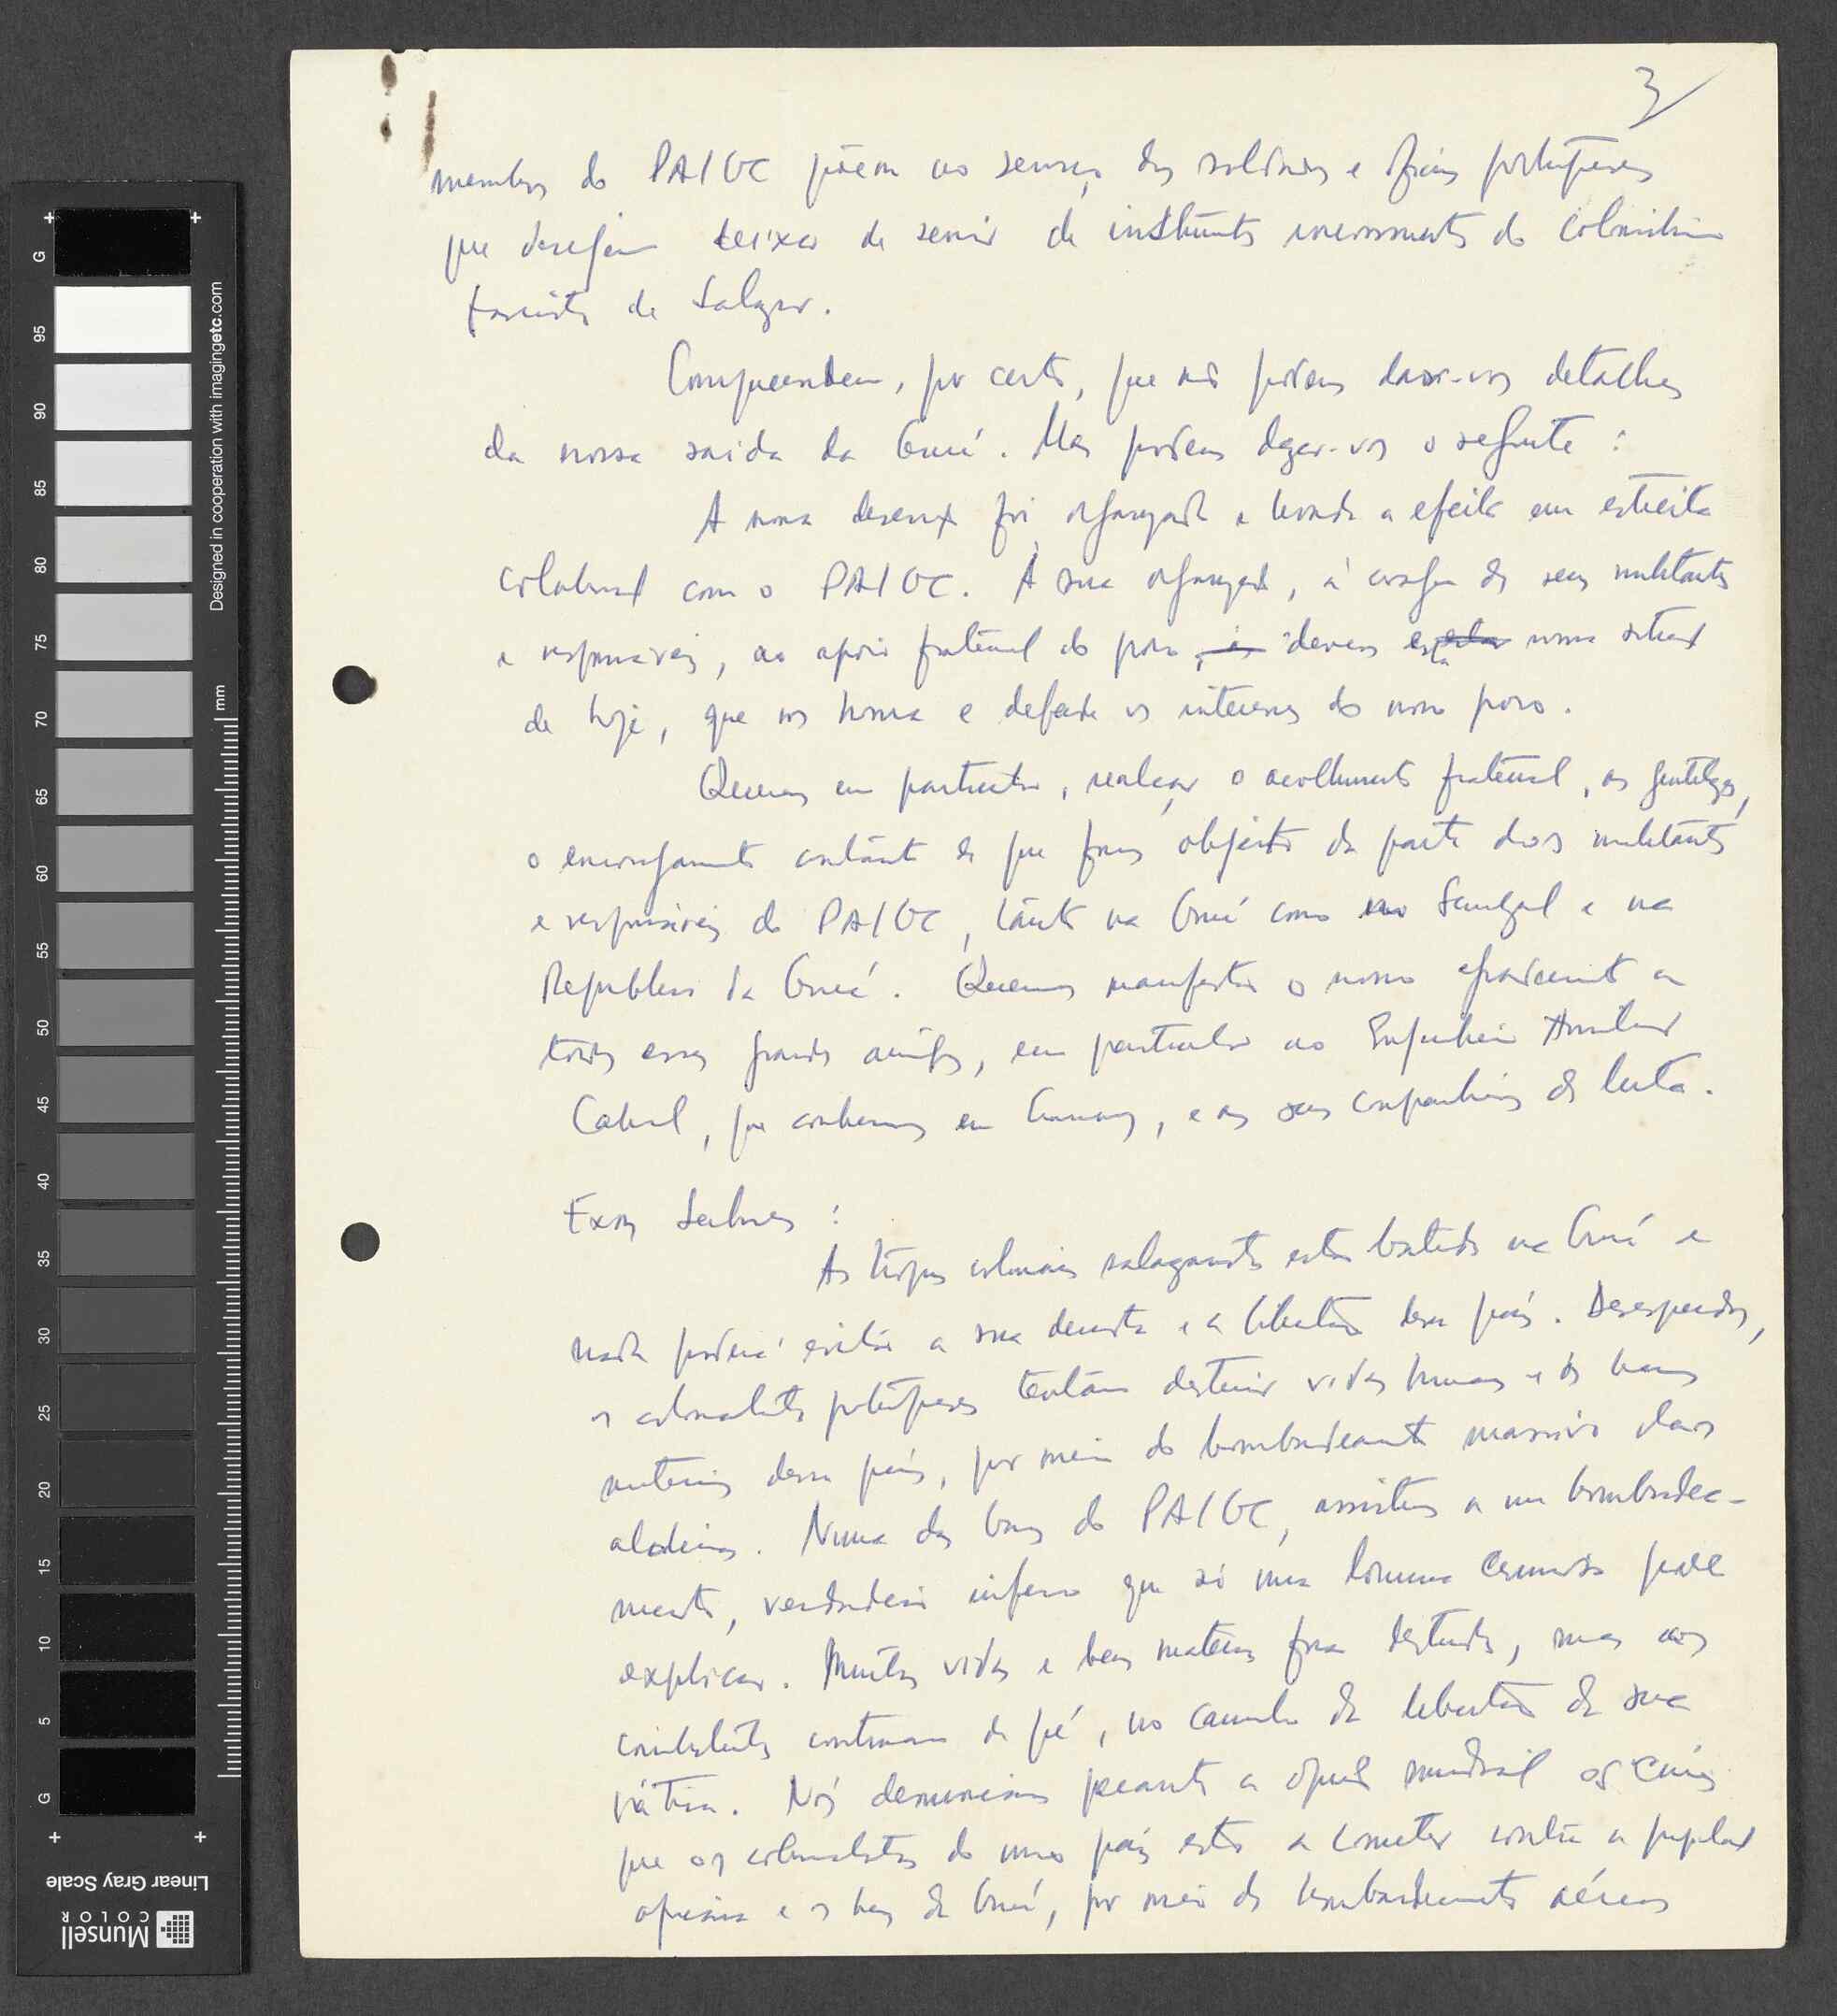 3
membros do PAIGC põem ao serviço dos soldados e oficiais portugueses
que desejem deixar de servir de instrumentos do colonialismo
fascista de Salazar.
Compreendem, por certo, que não podemos dar-vos detalhes
da nossa saída da Guiné. Mas podemos dizer-vos o seguinte :
A nossa deserção foi organizada e levada a efeito em estreita
colaboração com o PAIGC. À sua organização, à coragem dos seus militantes
e responsáveis, ao apoio fraternal do povo, devemos esta nossa situação
de hoje, que nos honra e defende os interesses do nosso povo.
Queremos em particular, realçar o acolhimento fraternal, as gentilezas,
o encorajamento constante de que fomos objecto da parte dos militantes
e responsáveis do PAIGC, tanto na Guiné como no Senegal e na
República da Guiné. Queremos manifestar o nosso agradecimento a
todos esses grandes amigos, em particular ao Engenheiro Amílcar
Cabral, que conhecemos em Conakry, e aos seus companheiros de luta.
Exmos Senhores :
As tropas coloniais salazaristas estão batidas na Guiné e
nada poderá evitar a sua derrota e a libertação desse país. Desesperados,
os colonialistas portugueses tentam destruir vidas humanas e os bens
materiais desse país, por meio do bombardeamento massivo das
aldeias. Numa das bases do PAIGC, assistimos a um bombardea-
mento, verdadeiro inferno que só uma loucura criminosa pode
explicar. Muitas vidas e bens materiais foram destruídos, mas os
combatentes continuam de pé, no caminho da libertação da sua
pátria. Nós denunciamos perante a opinião mundial os crimes
que os colonialistas do nosso país estão a cometer contra a população
africana e os bens da Guiné, por meio de bombardeamentos aéreos
mm
Designed in cooperation with imagingetc.com
G
95
90
85
80
75
70
65
60
55
50
45
40
35
30
25
20
15
10
5
G
Linear Gray Scale
Munsell
COLOR